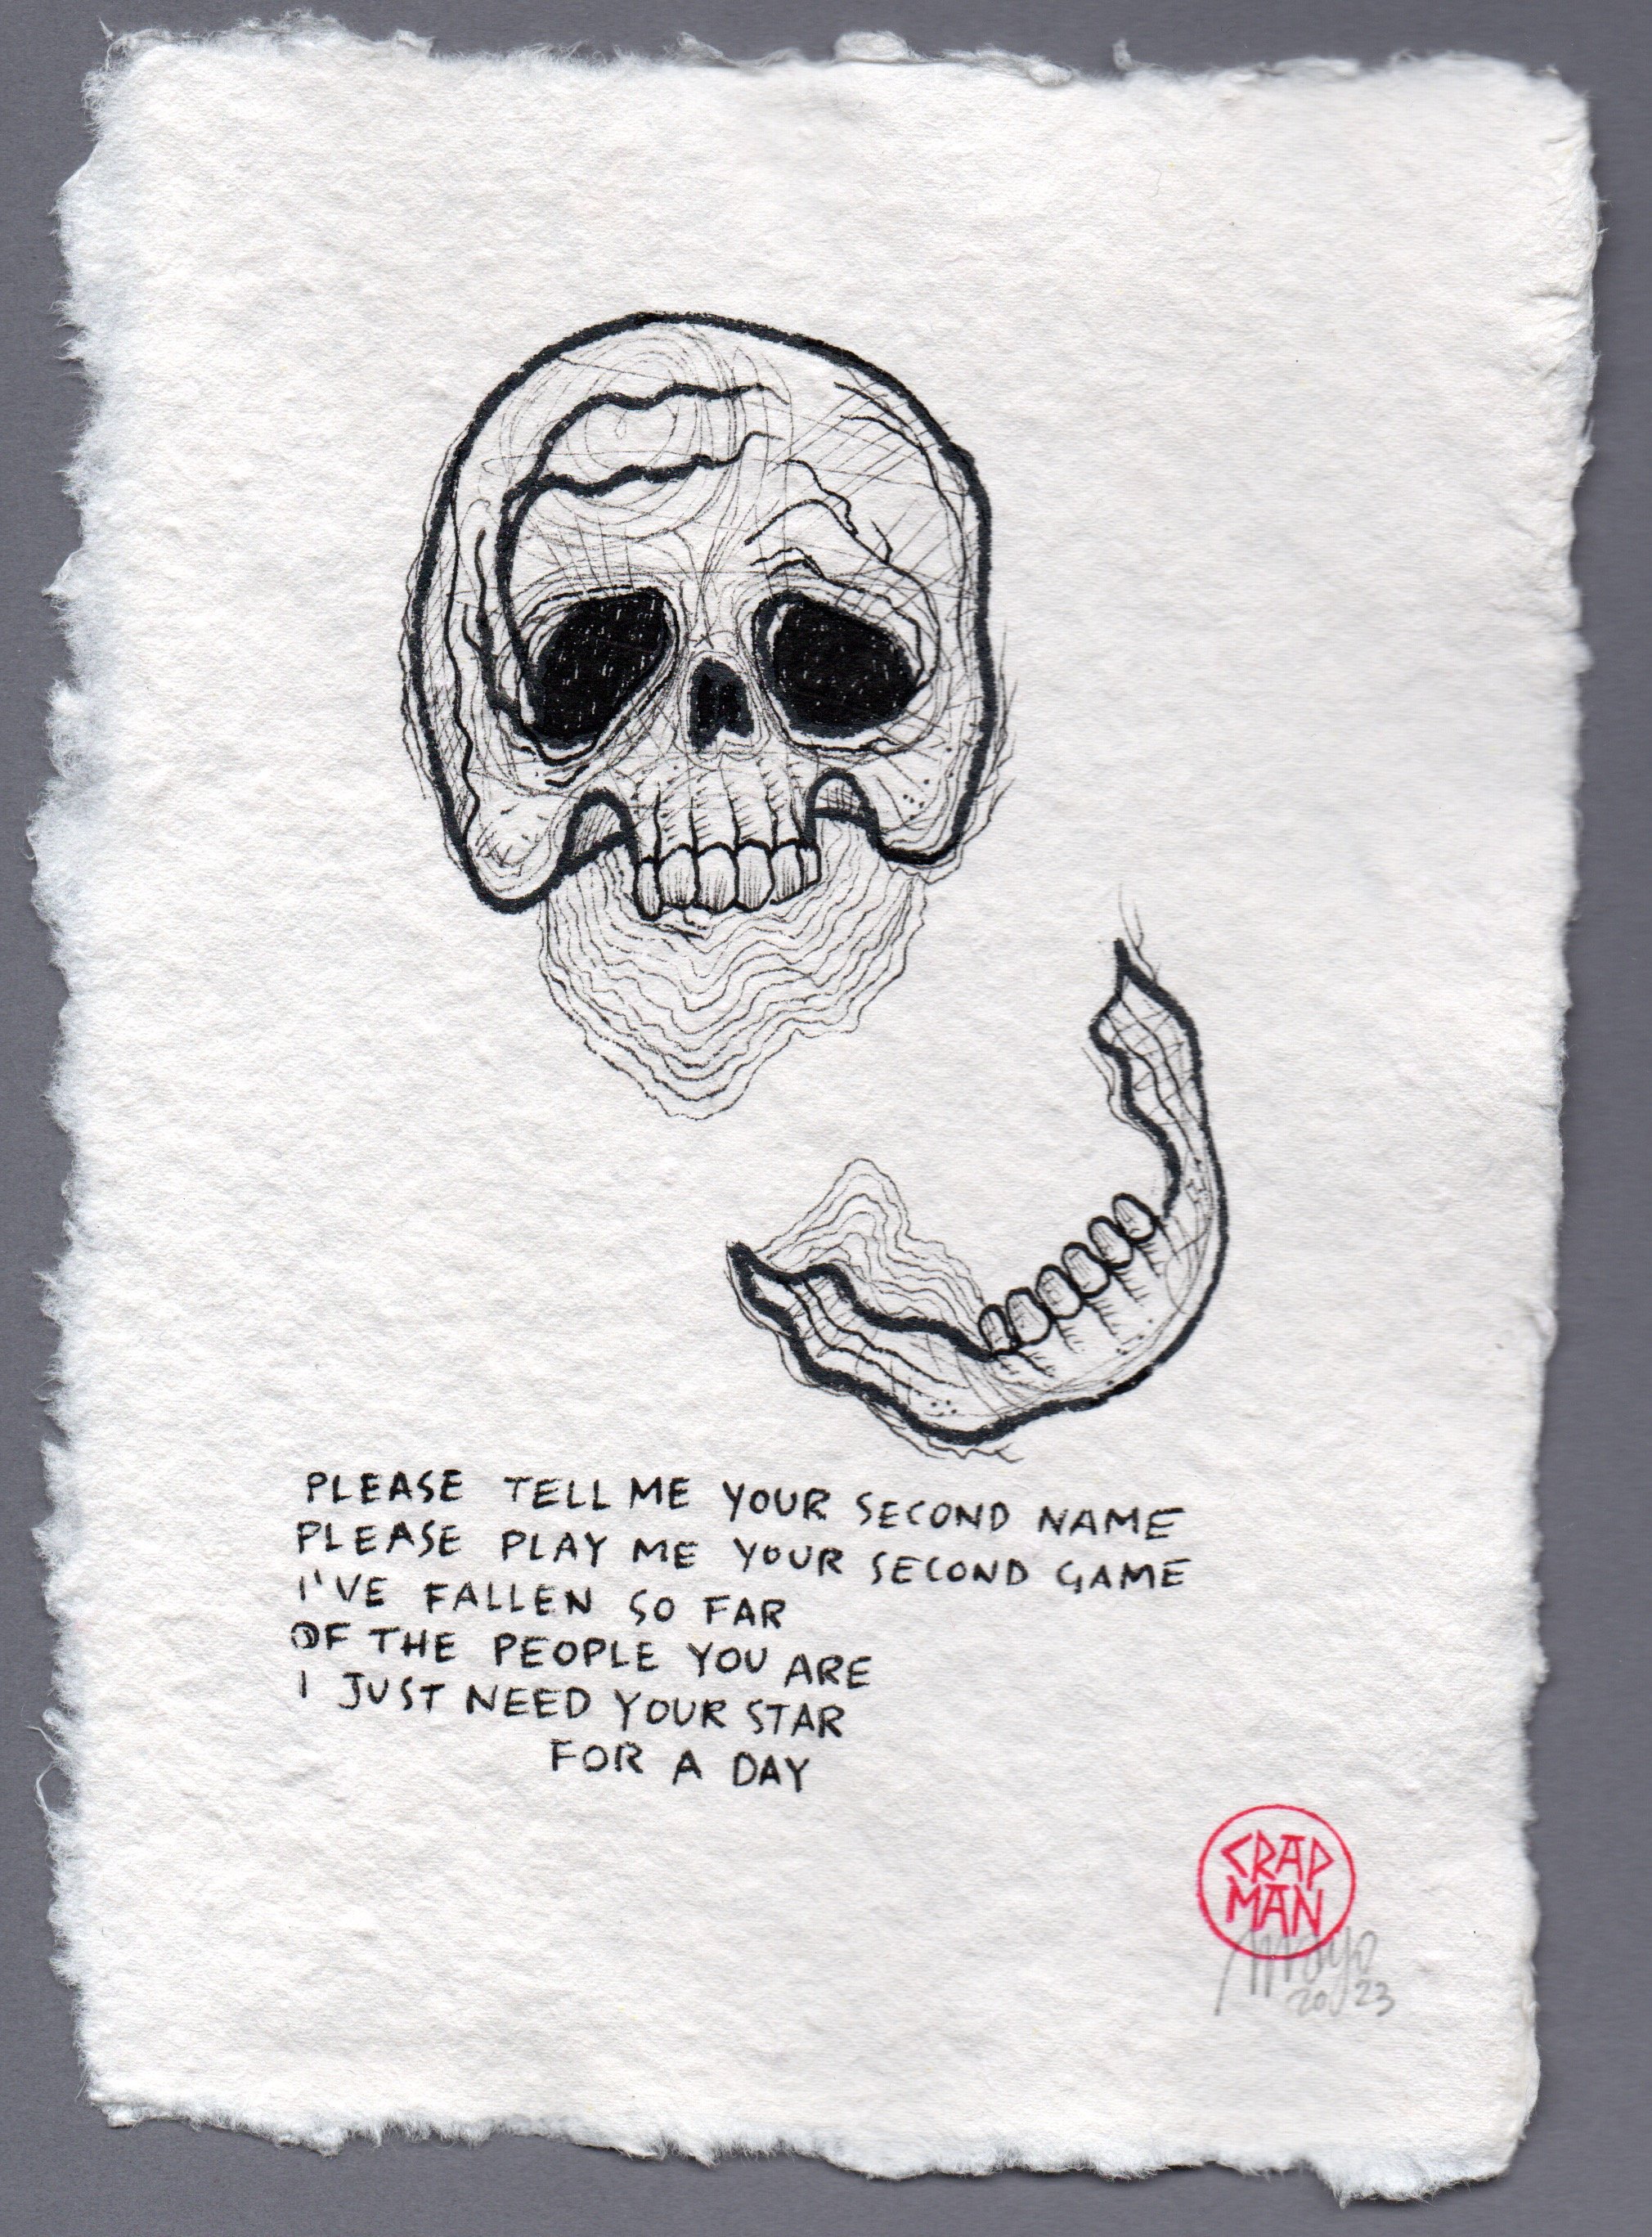 PLEASE TELL ME YOUR SECOND NAME
PLEASE PLAY ME YOUR SECOND GAME
I'VE FALLEN SO FAR
OF THE PEOPLE YOU ARE
I JUST NEED YOUR STAR
FOR A DAY
CRAP
MAN
Arroyo
2023